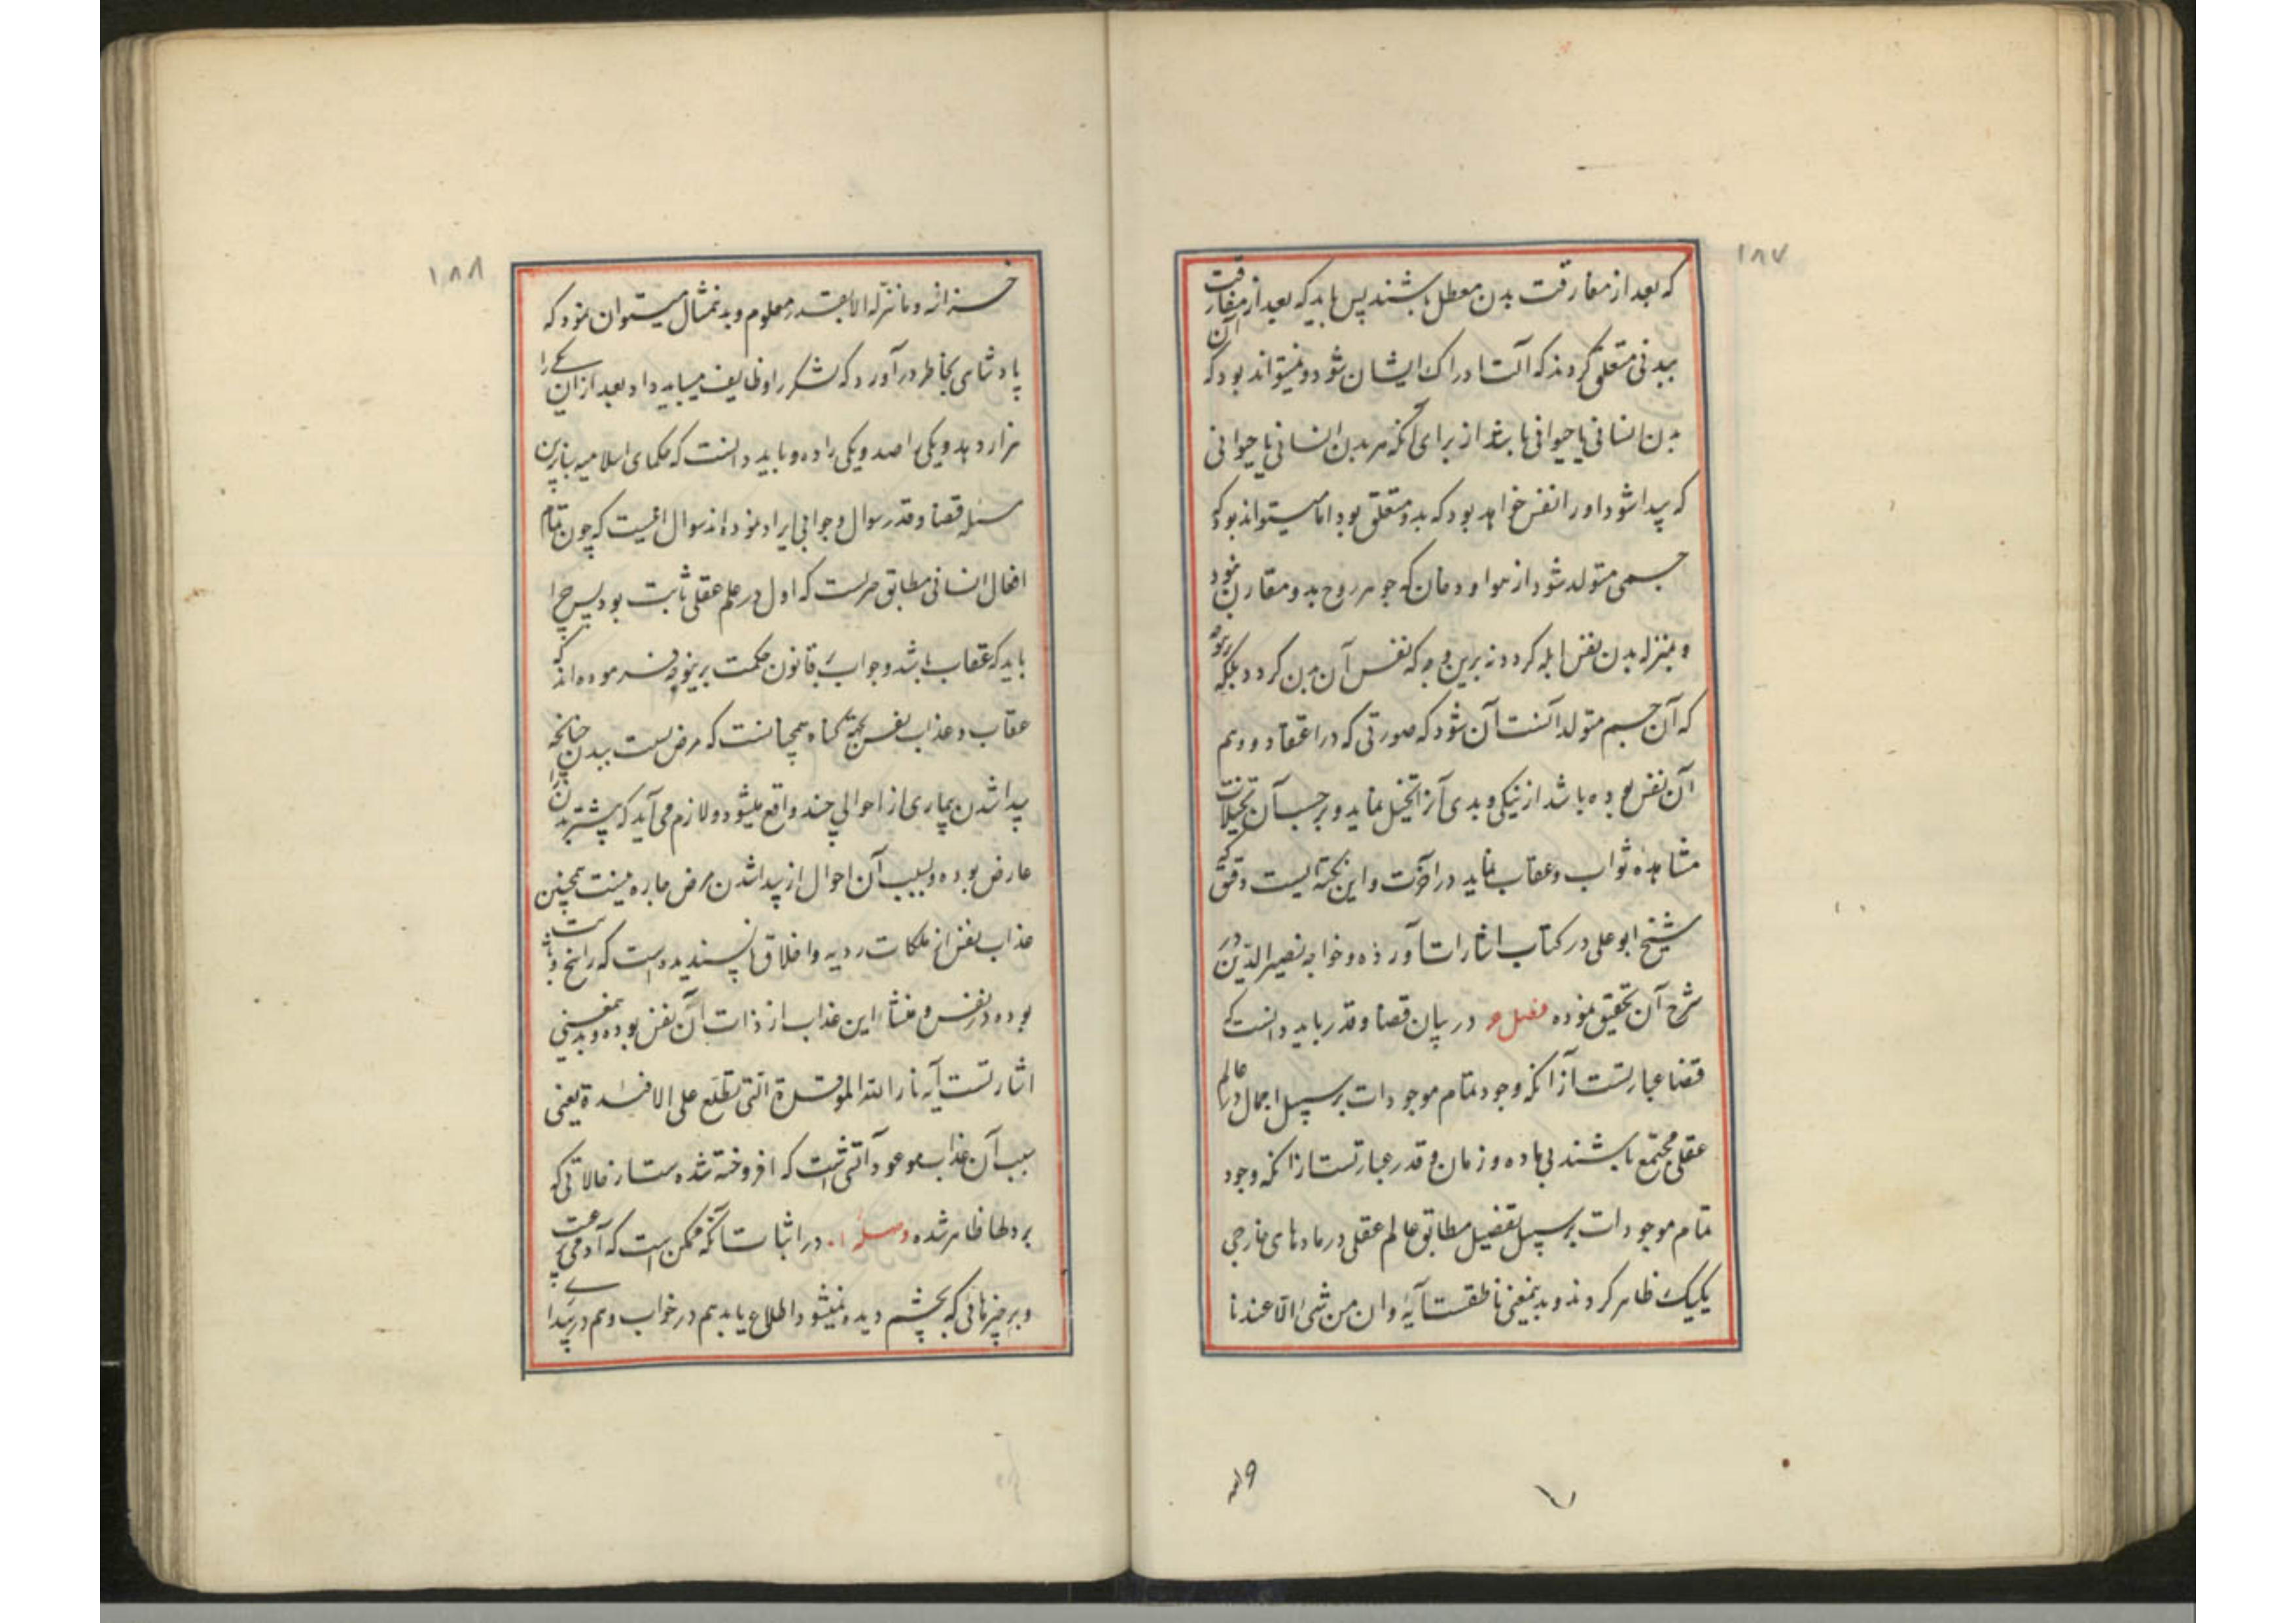 ۱۸۷
که بعد از مفارقت بدن معطل باشند پس باید که بعد از مفارقت آن
ببدنی متعلق کردند که آلت ادراک ایشان شود و نمیتواند بود که
بدن انسانی یا حیوانی باشد از برای آنکه هر بدن انسانی یا حیوانی
که پیدا شود او را نفس خواهد بود که بدو متعلق بود اما میتواند بود که
جسمی متولد شود از هوا و دخان که جوهر روح بدو مقارن بود
و بمنزله بدن نفس ابله کردد نه برین وجه که نفس آن بدن کردد بلکه
که آن جسم متولد آلت آن شود که صورتی که در اعتقاد و وهم
آن نفس بوده باشد از نیکی و بدی آنرا تخیل نماید و بر حسب آن تخیلات
مشاهده ثواب و عقاب نماید در آخرت و این نکته ایست دقیق که
شیخ ابو علی در کتاب اشارات آورده و خواجه نصیر الدین در
شرح آن تحقیق نموده فصل در بیان قضا و قدر باید دانست که
قضا عبارتست از آنکه وجود تمام موجودات بر سبیل اجمال در عالم
عقلی مجتمع باشند بی ماده و زمان و قدر عبارتست از آنکه وجود
تمام موجودات بر سبیل تفصیل مطابق عالم عقلی در مادهای خارجی
یکیک ظاهر کردند و بدینمعنی ناطقست آیه و ان من شیء الا عندنا
۱۸۸
خزانه و ما ننزله الا بقدر معلوم و بدینمثال میتوان نمود که
پادشاهی بخاطر درآورد که لشکر را وظایف میباید داد بعد از آن یکی را
هزار دهد و یکی را صد و یکی را ده و باید دانست که حکمای اسلامیه بنا برین
مسئله قضا و قدر سوال و جوابی ایراد نموده اند سوال اینست که چون تمام
افعال انسانی مطابق مرست که اول در علم عقلی ثابت بود پس چرا
باید که عقاب باشد و جواب بقانون حکمت برینوجه فرموده اند که
عقاب و عذاب نفس بجهة کناه همچنانست که مرض نسبت ببدن چنانچه
پیدا شدن بیماری از احوالی چند واقع میشود و لازم می آید که پیشتر بدنرا
عارض بوده و بسبب آن احوال از پیدا شدن مرض چاره نیست همچنین
عذاب نفس از ملکات ردیه و اخلاق ناپسندیده است که راسخ و ثابت
بوده در نفس و منشأ این عذاب از ذات آن نفس بوده و بدینمعنی
اشارتست آیه نار الله الموقدة التی تطلع علی الافئدة یعنی
سبب آن عذاب موعود آتشی است که افروخته شده است از خیالاتی که
بر دلها ظاهر شده وصل در اثبات آنکه ممکن است که آدمی بر
و بر چیزهائی که بچشم دیده نمیشود اطلاع یابد هم در خواب و هم در بیداری